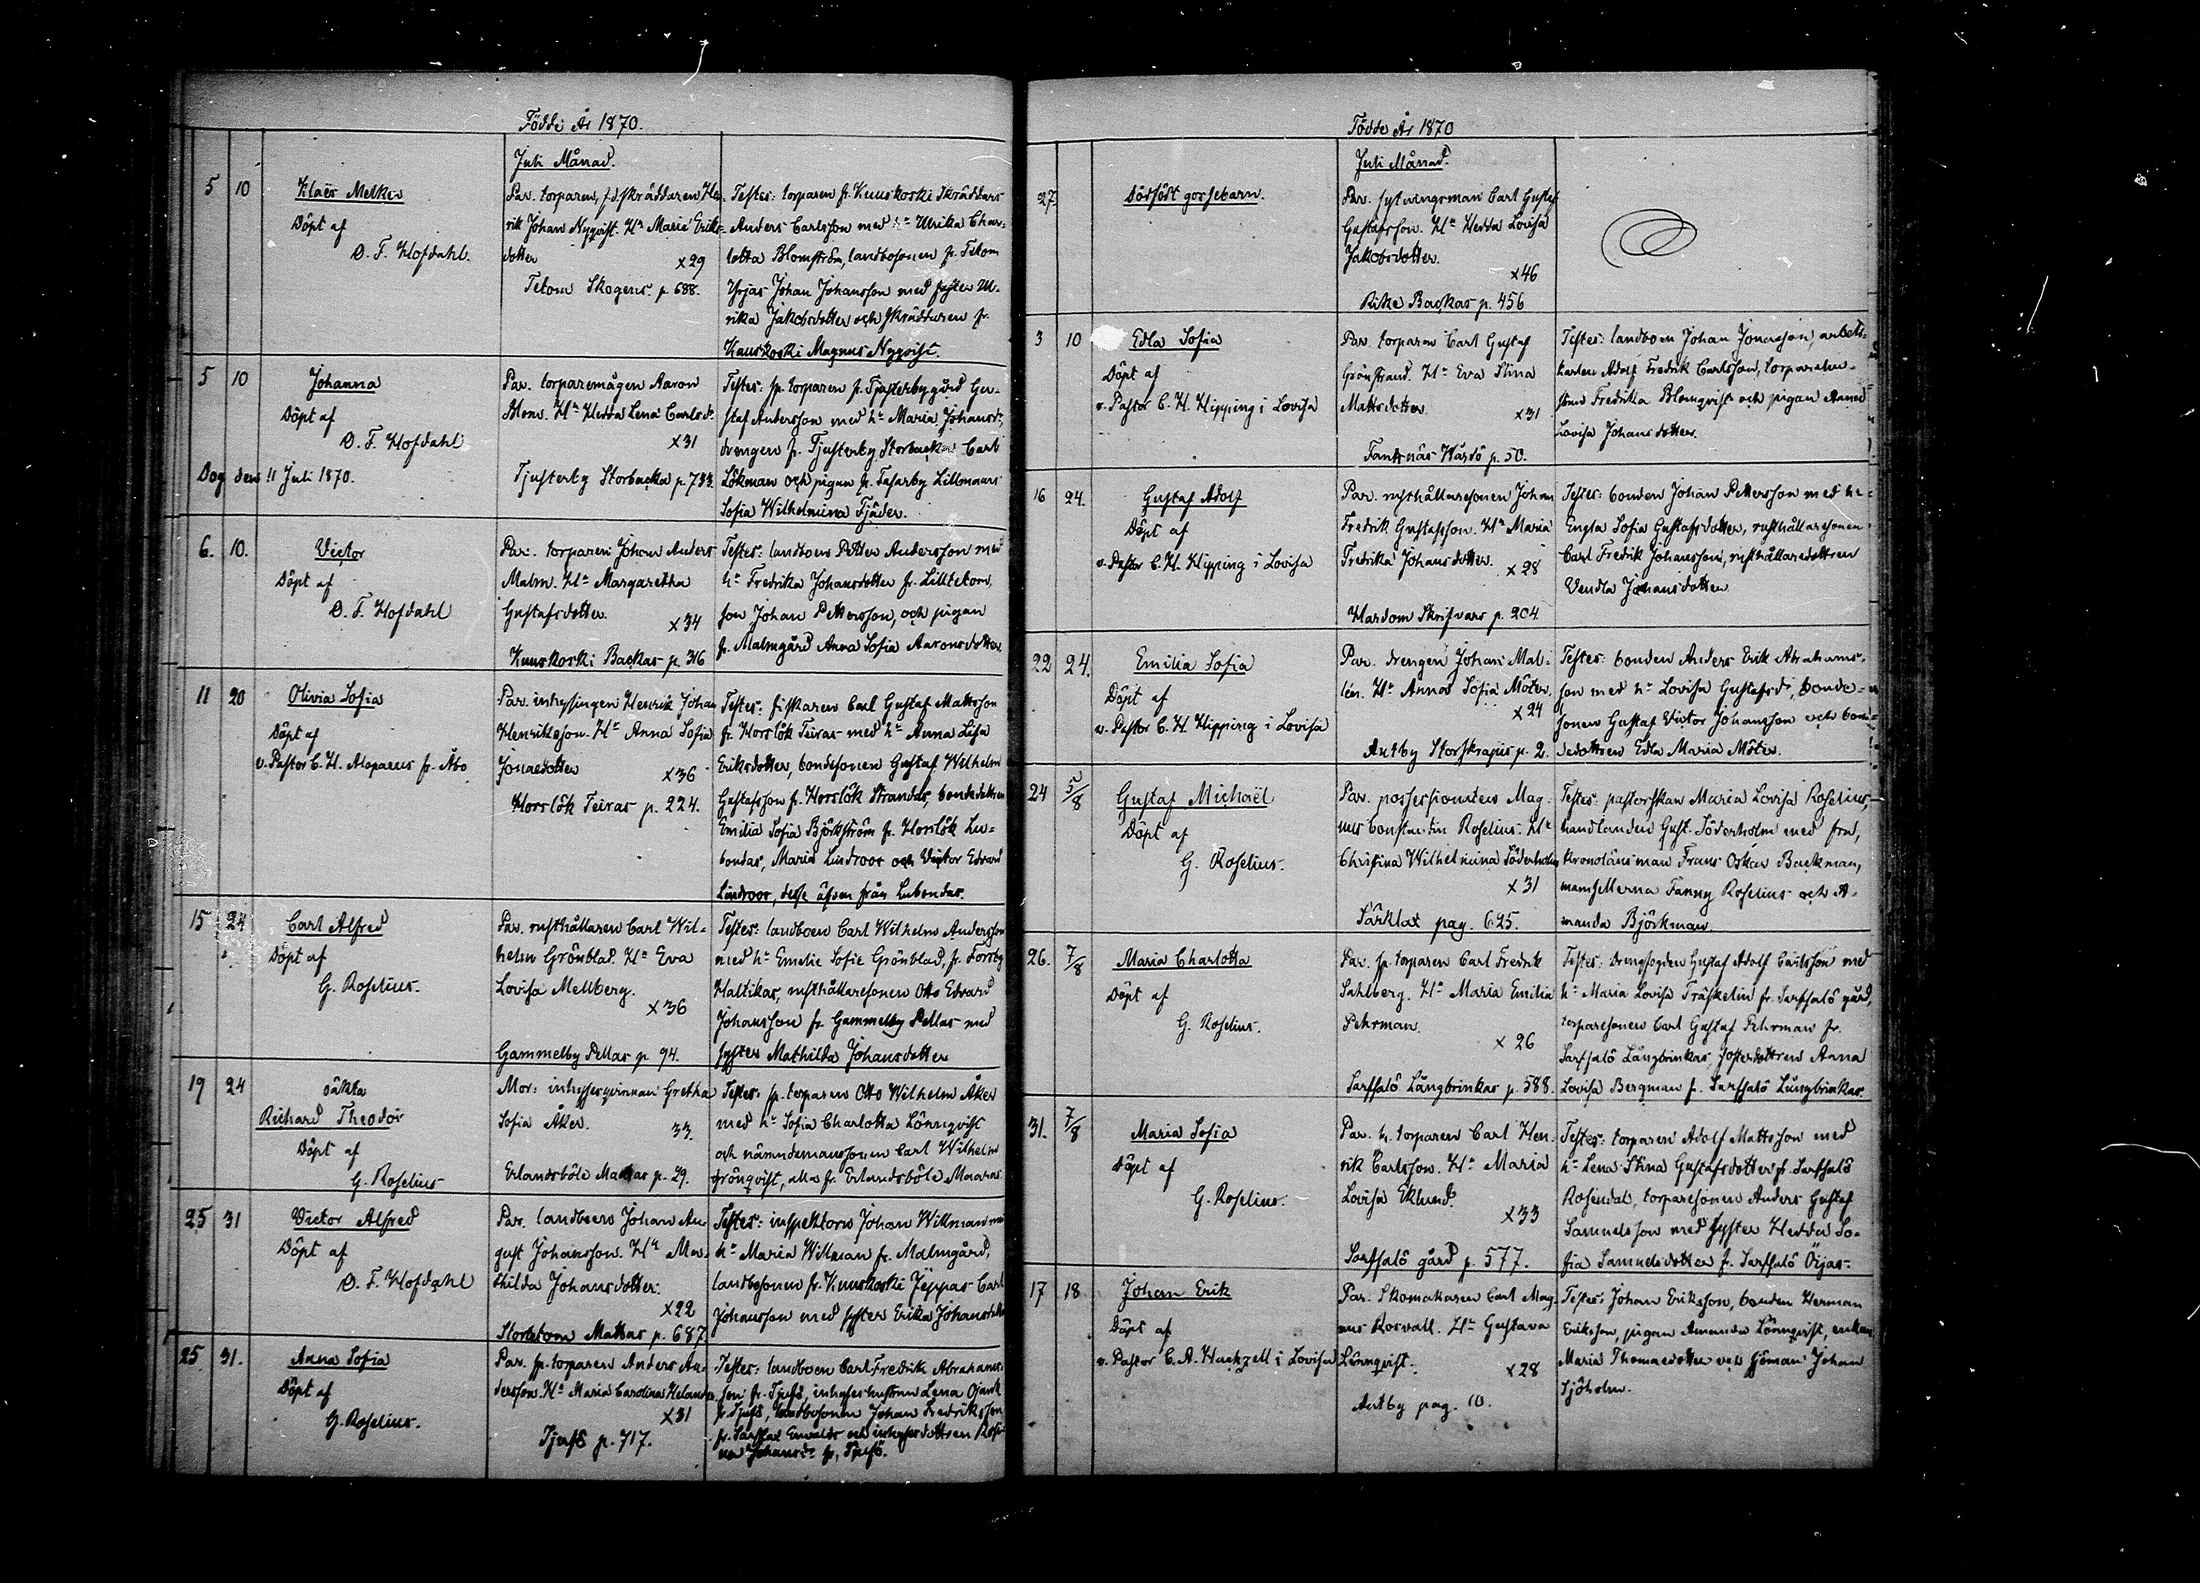 Födde År 1870.
Juli Månad.
5 10 Klaës Melker
Döpt af
D. F. Hofdahl.
Par. torparen, f.d. skräddaren Hen-
rik Johan Nyqvist. Hu Maria Eriks-
dotter x29
Tetom Skogens. p. 688.
Testes: torparen fr. Kuuskoski Skräddars
Anders Carlsson med hu Ulrika Char-
lotta Blomström, landbosonen fr. Tetom
Yrjas Johan Johansson med syster Ul-
rika Jakobsdotter och skräddaren fr.
Kuuskoski Magnus Nyqvist.
5 10 Johanna
Döpt af
D. F. Hofdahl
Dog den 11 Juli 1870.
Par. torparemågen Aaron
Blom. Hu Hedda Lena Carlsd.
x31
Tjusterby Storbacka p. 733.
Testes: sp. torparen fr. Tjusterby gård Gu-
staf Andersson med hu Maria Johansd.,
drengen fr. Tjusterby Storbacka Carl
Lökman och pigan fr. Tasarby Lillmaars
Sofia Wilhelmina Fjäder.
6. 10. Victor
Döpt af
D. F. Hofdahl
Par. torparen Johan Anders
Malm. Hu Margaretha
Gustafsdotter x34
Kuuskoski Backas p. 316
Testes: landboen Petter Andersson med
hu Fredrika Johansdotter fr. Lilltetom,
son Johan Pettersson, och pigan
fr. Malmgård Anna Sofia Aaronsdotter
11 20 Olivia Sofia
Döpt af
v. Pastor C. H. Alopaeus fr. Åbo
Par. inhysingen Henrik Johan
Henriksson. Hu Anna Sofia
Jonaedotter x36
Horslök Teiras p. 224.
Testes: fiskaren Carl Gustaf Mattsson
fr. Horslök Teiras med hu Anna Lisa
Eriksdotter, bondesonen Gustaf Wilhelm
Gustafsson fr. Horslök Strandas, bondedottren
Emilia Sofia Björkström fr. Horslök Lu-
bondas, Maria Lindroos och Victor Edvard
Lindroos, desse äfven från Lubondas.
15 24 Carl Alfred
Döpt af
G. Roselius.
Par. rusthållaren Carl Wil-
helm Grönblad. Hu Eva
Lovisa Mellberg.
x36
Gammelby Pellas p. 94.
Testes: landboen Carl Wilhelm Andersson
med hu Emelie Sofie Grönblad, fr. Forsby
Maltikas, rusthållaresonen Otto Edvard
Johansson fr. Gammelby Pellas med
syster Mathilda Johansdotter
19 24 oäkta
Richard Theodor
Döpt af
G. Roselius
Mor: inhysesqvinnan Gretha
Sofia Åker. 33.
Erlandsböle Maaras p. 29.
Testes: sp. torparen Otto Wilhelm Åker
med hu Sofia Charlotta Lönnqvist
och nämndemanssonen Carl Wilhelm
Grönqvist, alla fr. Erlandsböle Maaras
25 31 Victor Alfred
Döpt af
D. F. Hofdahl
Par. landboen Johan Au-
gust Johansson. Hu Ma-
thilda Johansdotter.
x22
Stortetom Mattas p. 687
Testes: inspektorn Johan Willman med
hu Maria Willman fr. Malmgård,
landbosonen fr. Kuuskoski Jeppas Carl
Johansson med syster Erika Johansdotter
25 31. Anna Sofia
Döpt af
G. Roselius.
Par. sp. torparen Anders An-
dersson. Hu Maria Carolina Helander.
x31
Tjusö p. 717.
Testes: landboen Carl Fredrik Abrahams-
son fr. Tjusö, inhyseshustrun Lena Ojank
fr. Tjusö, landbosonen Johan Fredriksson
fr. Särklax Envalds och inhysesdottren Rosi-
na Johansd. fr. Tjusö.
Födde År 1870
Juli Månad.
27 Dödfödt gossebarn.
Par. sytningsman Carl Gustaf
Gustafsson. Hu Hedda Lovisa
Jakobsdotter.
x46
Rike Backas p. 456
3 10 Edla Sofia
Döpt af
v. Pastor C. H. Hipping i Lovisa
Par. torparen Carl Gustaf
Grönstrand. Hu Eva Stina
Mattsdotter. x31
Tantnäs Hardö p. 50.
Testes: landboen Johan Jonasson, arbets-
karlen Adolf Fredrik Carlsson, torparehu-
strun Fredrika Blomqvist och pigan Anna
Lovisa Johansdotter.
16 24. Gustaf Adolf
Döpt af
v. Pastor C. H. Hipping i Lovisa
Par. rusthållaresonen Johan
Fredrik Gustafsson. Hu Maria
Fredrika Johansdotter. x28
Hardom Skrifvars p. 204
Testes: bonden Johan Pettersson med hu
Engla Sofia Gustafsdotter, rusthållaresonen
Carl Fredrik Johansson, rusthållaredottren
Vendla Johansdotter
22 24. Emilia Sofia
Döpt af
v. Pastor C. H. Hipping i Lovisa
Par. drengen Johan Mal-
lén. Hu Anna Sofia Möter.
x24
Antby Storskrapis p. 2.
Testes: bonden Anders Erik Abrahams-
son med hu Lovisa Gustafsd., bonde-
sonen Gustaf Victor Johansson och bon-
dedottren Edla Maria Möter.
24 5/8 Gustaf Michaël
Döpt af
G. Roselius.
Par. possessionaten Mag-
nus Constantin Roselius. Hu
Christina Wilhelmina Söderholm
x31
Särklax pag. 625.
Testes: pastorskan Maria Lovisa Roselius,
handlanden Gust. Söderholm med fru,
kronolänsman Frans Oskar Backman,
mamsellerna Fanny Roselius och A-
manda Björkman.
26. 7/8 Maria Charlotta
Döpt af
G. Roselius.
Par. sp. torparen Carl Fredrik
Sahlberg. Hu Maria Emilia
Pehrman.
x26
Sarfsalö Långbrinkas p. 588.
Testes: drengfogden Gustaf Adolf Carlsson med
hu Maria Lovisa Träskelin fr. Sarfsalö gård,
torparesonen Carl Gustaf Pehrman fr.
Sarfsalö Långbrinkas, fosterdottren Anna
Lovisa Bergman fr. Sarfsalö Långbrinkas.
31. 7/8 Maria Sofia
Döpt af
G. Roselius.
Par. h. torparen Carl Hen-
rik Carlsson. Hu Maria
Lovisa Eklund.
x33
Sarfsalö gård p. 577.
Testes: torparen Adolf Mattsson med
hu Lena Stina Gustafsdotter fr. Sarfsalö
Rosendal, torparesonen Anders Gustaf
Samuelsson med syster Hedda So-
fia Samuelsdotter fr. Sarfsalö Öijas.
17 18 Johan Erik
Döpt af
v. Pastor C. A. Hackzell i Lovisa
Par. Skomakaren Carl Mag-
nus Rosvall. Hu Gustava
Lönnqvist. x28
Antby pag. 10.
Testes: Johan Eriksson, bonden Herman
Eriksson, pigan Amanda Lönnqvist, enkan
Maria Thomaedotter och sjöman Johan
Sjöholm.